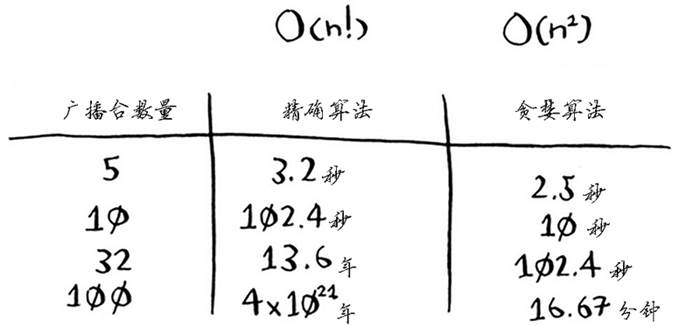 O(n!) O(n²)
广播台数量 精确算法 贪婪算法
5 3.2秒 2.5秒
10 102.4秒 10秒
32 13.6年 102.4秒
100 4×10²¹年 16.67分钟